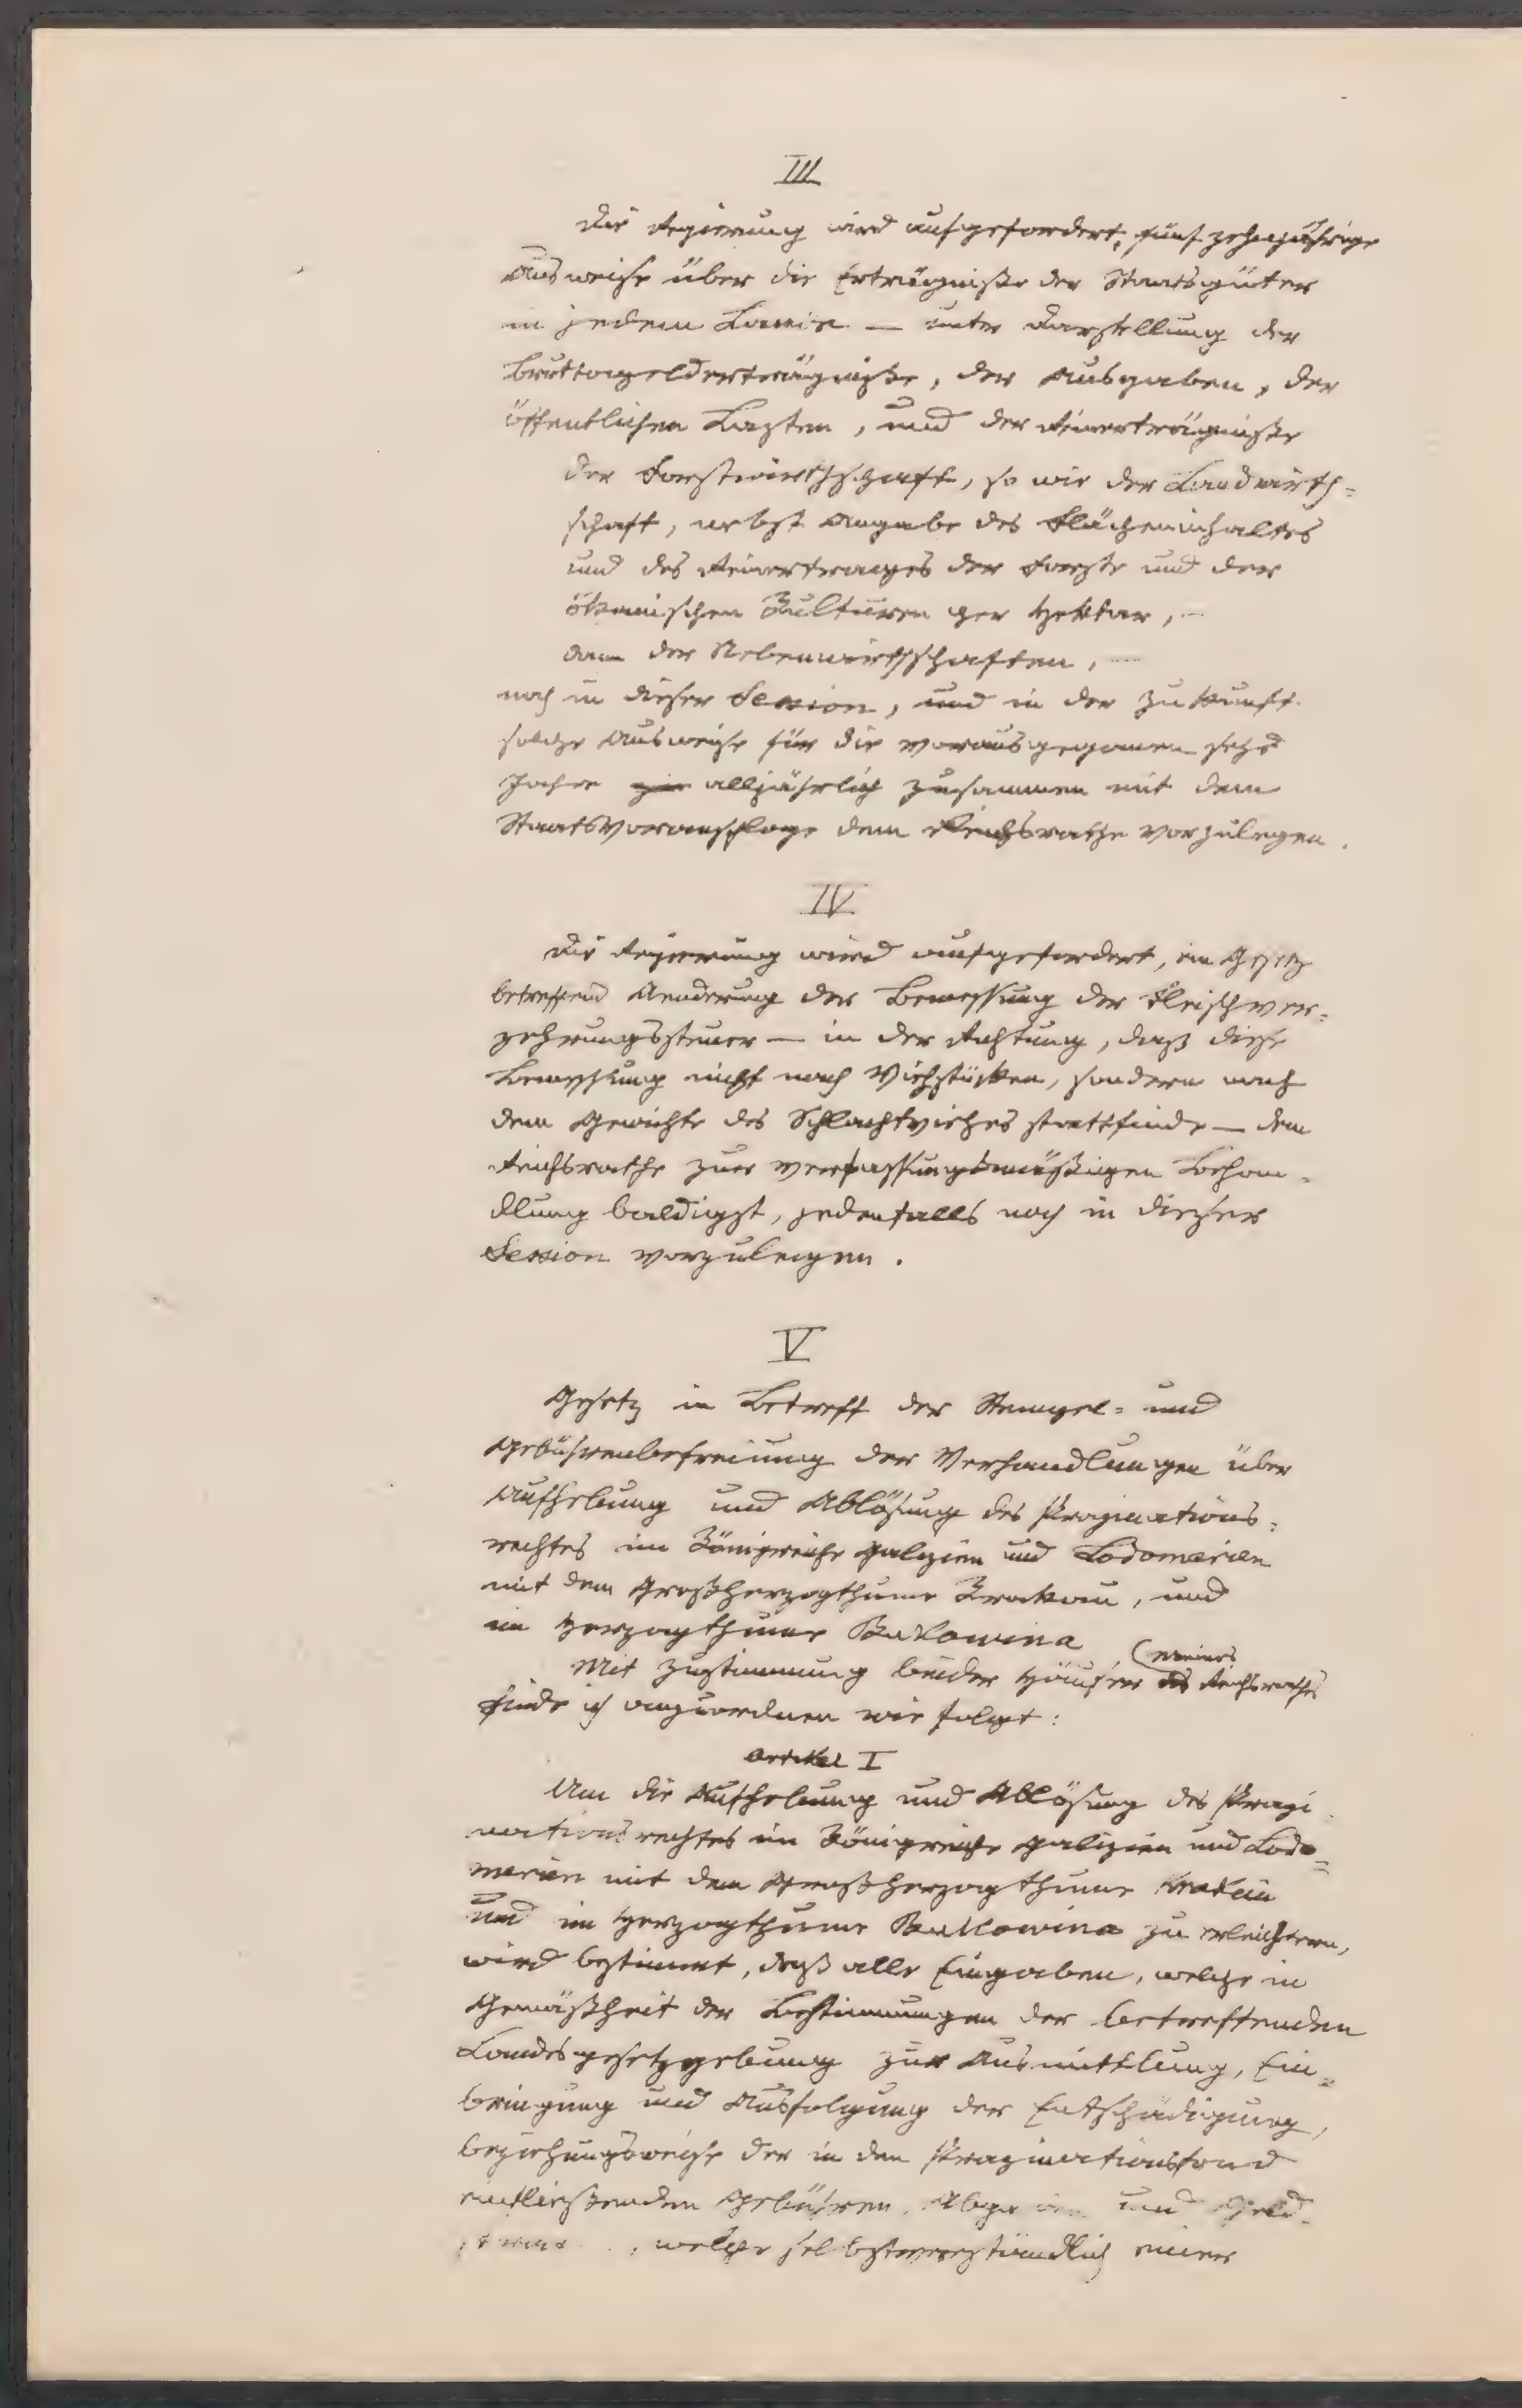 III
Die Regierung wird aufgefordert, fünfzehnjährige
Ausweise über die Erträgnisse der Staatsgüter
in jedem Lande — unter Darstellung der
Bruttogelderträgnisse, der Ausgaben, der
öffentlichen Lasten, und der Reinerträgnisse
der Forstwirthschaft, so wie der Landwirth=
schaft, nebst Angabe des Flächeninhaltes
und des Reinertrages der Forste und der
ökonomischen Kulturen per Hektar, —
dann der Nebenwirthschaften, —
noch in dieser Session, und in der Zukunft
solche Ausweise für die vorausgegangenen sechs
Jahre alljährlich zusammen mit dem
Staatsvoranschlage dem Reichsrathe vorzulegen.
IV
Die Regierung wird aufgefordert, ein Gesetz
betreffend Aenderung der Bemessung der Fleischver=
zehrungssteuer — in der Richtung, daß diese
Bemessung nicht nach Viehstücken, sondern nach
dem Gewichte des Schlachtviehes stattfinde — dem
Reichsrathe zur verfassungsmäßigen Behan=
dlung baldigst, jedenfalls noch in dieser
Session vorzulegen.
V
Gesetz in Betreff der Stempel= und
Gebührenbefreiung der Verhandlungen über
Aufhebung und Ablösung des Propinations=
rechtes im Königreiche Galizien und Lodomerien
mit dem Großherzogthume Krakau, und
im Herzogthume Bukowina
Mit Zustimmung beider Häuser (meines
des Reichsrathes
finde ich anzuordnen wie folgt:
Artikel I
Um die Aufhebung und Ablösung des Propi
nationsrechtes im Königreiche Galizien und Lodo=
merien mit dem Großherzogthume Krakau
und im Herzogthume Bukowina zu erleichtern,
wird bestimmt, daß alle Eingaben, welche in
Gemäßheit der Bestimmungen der betreffenden
Landesgesetzgebung zur Ausmittlung, Ein=
bringung und Ausfolgung der Entschädigung,
beziehungsweise der in den Propinationsfond
einfließenden Gebühren, und Geld-
welche selbstverständlich einer